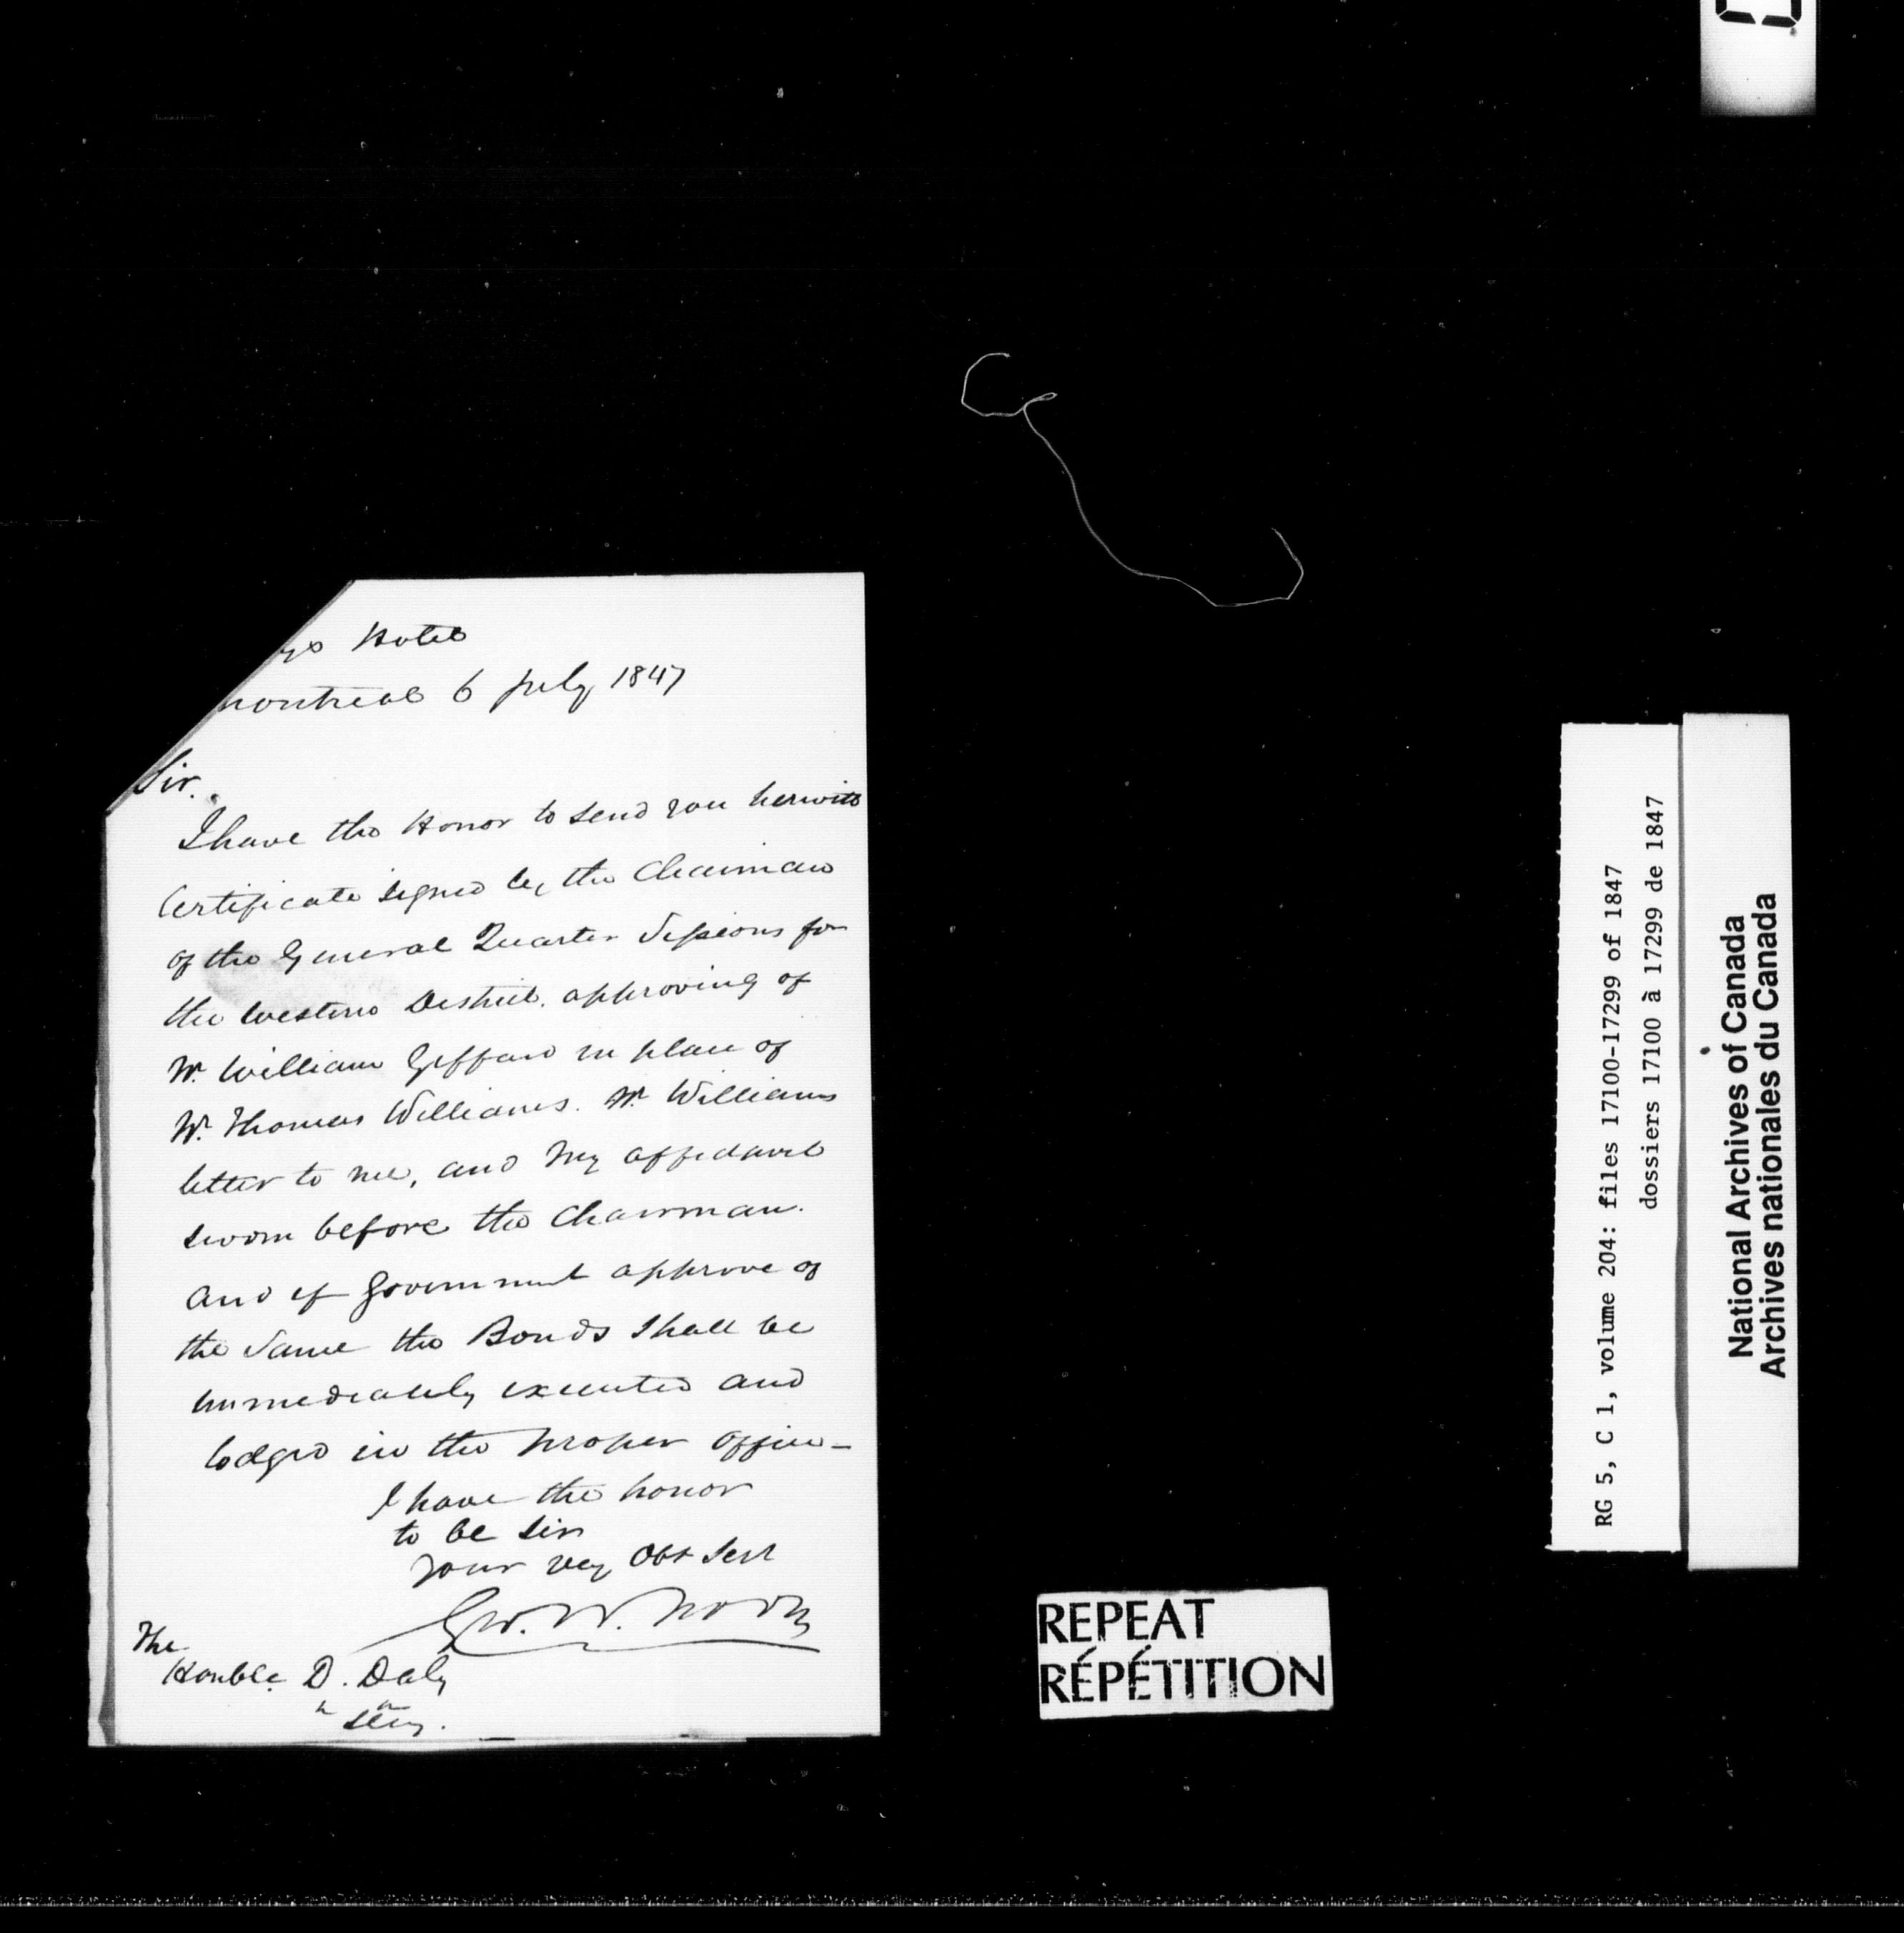 ys Hotel
Montreal 6 July 1847
Sir.
I have the Honor to send you herwith
Certificate signed by the Chairman
of the General Quarter Sessions for
the Western District. approving of
Mr. William Giffard in place of
Mr. Thomas Williams. Mr. Williams
letter to me, and My affidavit
sworn before the Chairman.
And if Government approve of
the Same the Bonds Shall be
immediately executed and
lodged in the proper office_
I have the honor
to be Sir
Your very Obt Sert
Geo. W.
The
Honble. D. Daly
Secy.
REPEAT
RÉPÉTITION
RG 5, C 1, volume 204: files 17100-17299 of 1847
dossiers 17100 à 17299 de 1847
National Archives of Canada
Archives nationales du Canada